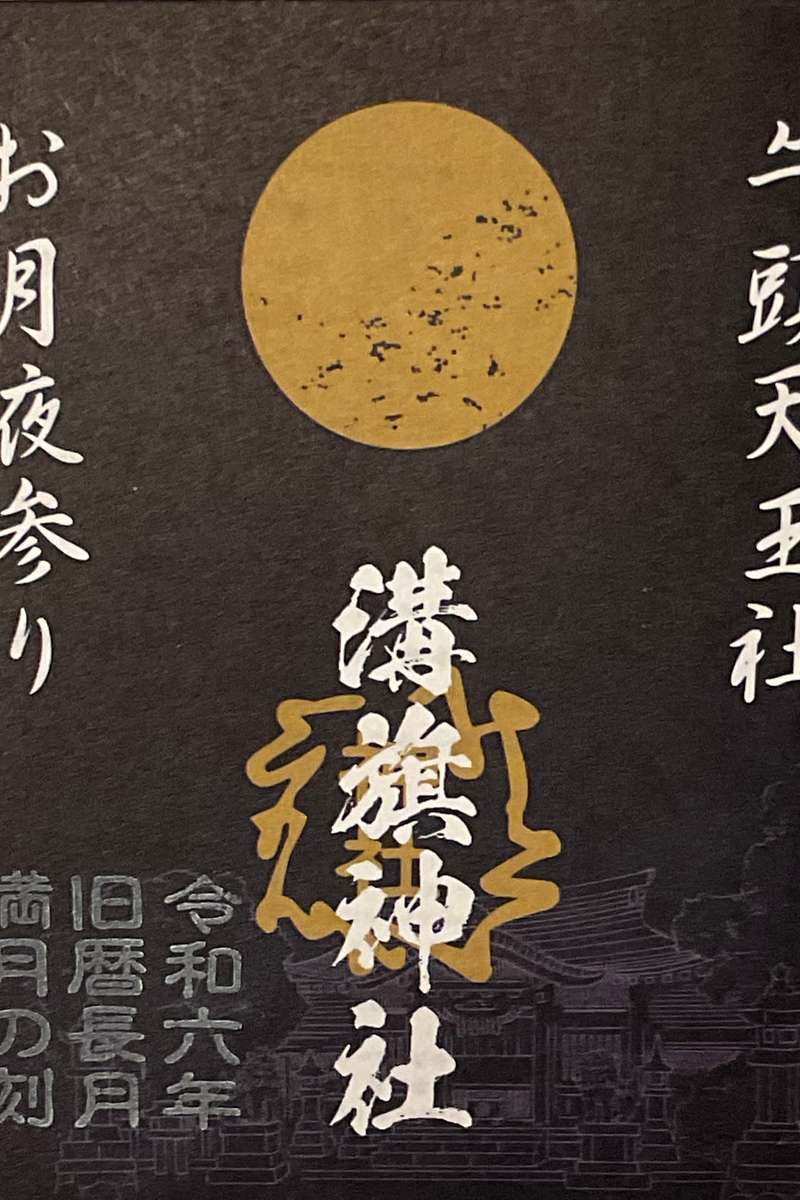 牛頭天王社
溝旗神社
令和六年
旧暦長月
満月の刻
お月夜参り